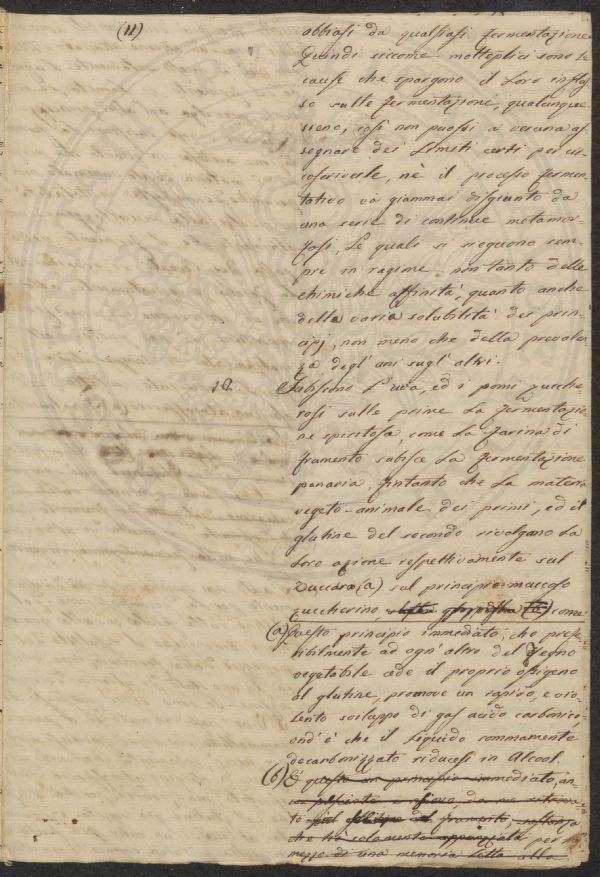 (11)
abbiasi da qualsiasi fermentazione
Quindi siccome molteplici sono le
cause che spargono il loro influs-
so sulle fermentazione, qualunque
sieno, così non puossi a veruna as-
segnare dei limiti certi per cir-
coscriverle, nè il processo fermen-
tativo va giammai disgiunto da
una serie di continue metamor-
fosi, le quali si sieguono sem-
pre in ragione non tanto delle
chimiche affinità, quanto anche
della varia solubilità dei prin-
cipj, non meno che della prevalen-
za degl' uni sugl' altri.
12. Subiscono l'uva, ed i pomi zucche-
rosi sulle prime la fermentazio-
ne spiritosa, come la farina di
framento subisce la fermentazione
panaria, fintanto che la materia
vegeto-animale dei primi, ed il
glutine del secondo rivolgano la
loro azione respettivamente sul
Zuccaro (a) sul principio muccoso
zuccherino come
(a) Questo principio immediato, che prefe-
ribilmente ad ogn' altro del Regno
vegetabile cede il proprio ossigeno
al glutine, promove un rapido, e vio-
lento sviluppo di gas acido carbonico,
ond' è che il liquido sommamente
decarbonizzato riducesi in Alcool.
(b) È questo un principio immediato, an-
da me
to del framento, sostanza
che fù solamente appoggiata per
mezzo di una memoria letta alla